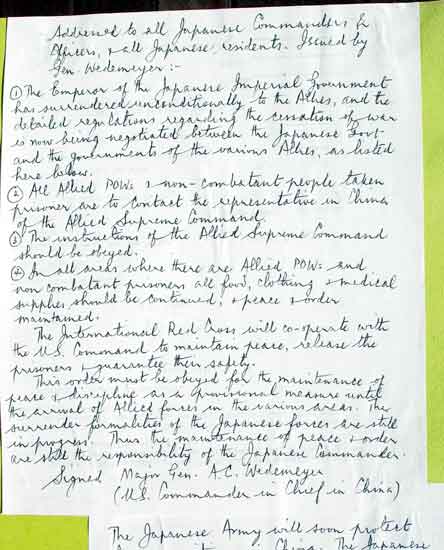 Addressed to all Japanese Commanders &
Officers, & all Japanese residents. Issued by
Gen. Wedemeyer :-
① The Emperor of the Japanese Imperial Government
has surrendered unconditionally to the Allies, and the
detailed regulations regarding the cessation of war
is now being negotiated between the Japanese Govt
and the Governments of the various Allies, as listed
here below.
② All Allied POWs & non-combatant people taken
prisoner are to contact the representative in China
of the Allied Supreme Command.
③ The instructions of the Allied Supreme Command
should be obeyed.
④ In all areas where there are Allied POWs and
non combatant prisoners all food, clothing & medical
supplies should be continued, & peace & order
maintained.
The International Red Cross will co-operate with
the U.S. Command to maintain peace, release the
prisoners & guarantee their safety.
This order must be obeyed for the maintenance of
peace & discipline as a provisional measure until
the arrival of Allied forces in the various areas. The
surrender formalities of the Japanese forces are still
in progress. Thus the maintenance of peace & order
are still the responsibility of the Japanese Commander.
Signed Major Gen. A.C. Wedemeyer
(U.S. Commander in Chief in China)
The Japanese Army will soon protect
China. The Japanese